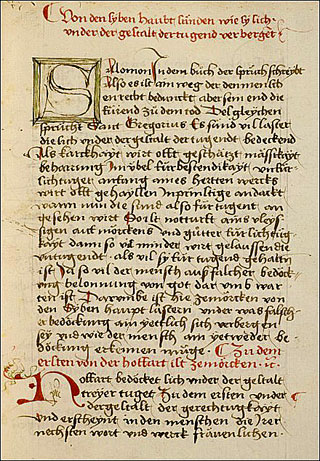 Von den syben haubt sünden wie sy sich
under der gestalt der tugend verberget
Salomon In dem buch der sprüch schreybt
Also es ist ain weg der den menschen
recht bedunckt aber sein end die
fürend zu dem tod Desgleychen
spricht Sant Gregorius Es sind vil laster
die sich under der gestalt der tugent bedeckend
Als karckhayt wirt offt geschätzt mässikayt
beharung Im übel für bestendikayt
wirt offt gehayssen Inprünstige andacht
wann nun die sünd also für tugent an
gesehen wirt So ist notturft
sigen auf mörckens und gutter fürsichtig
kayt dann so vil minder wirt gelaussen die
untugent als vil sy für tugend gehaltn
ist Ja so vil der mensch auß falscher bedöck
ung belonnung von got dar umb war
ten ist Darumbe ist hie zemörcken von
den syben haupt lastern under was falsch
er bedöckung ain yettlich sich verbergen
sey und wie der mensch ain yetweder be
döckung erkennen müge Zu dem
ersten von der hoffart ist zemörcken
Hoffart bedöcket sich under der gestalt
treyer tuget Zu dem ersten under
der gestalt der gerechtigkayt
und erscheynt in den menschen die Irer
nechsten wort und werck fräuenlichen